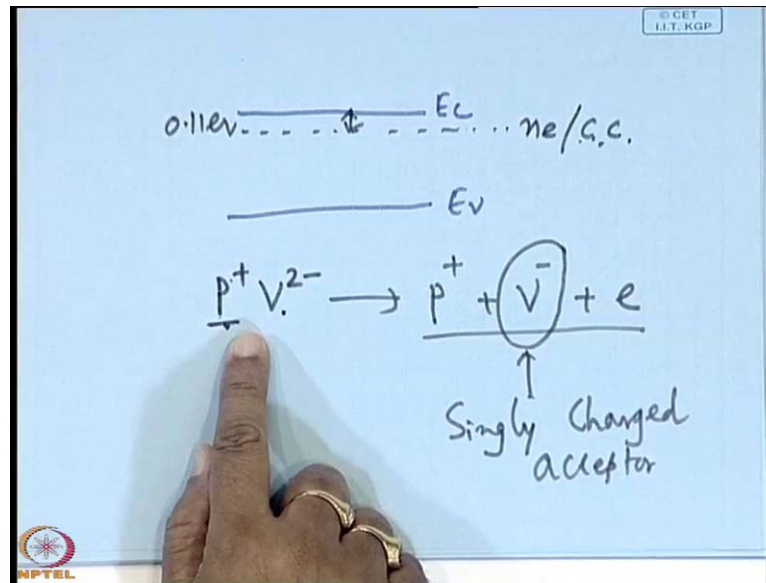 © CET
I.I.T. KGP
0.11ev Ec
ne/c.c.
Ev
P⁺ V²⁻ → P⁺ + V⁻ + e
Singly Charged
acceptor
NPTEL